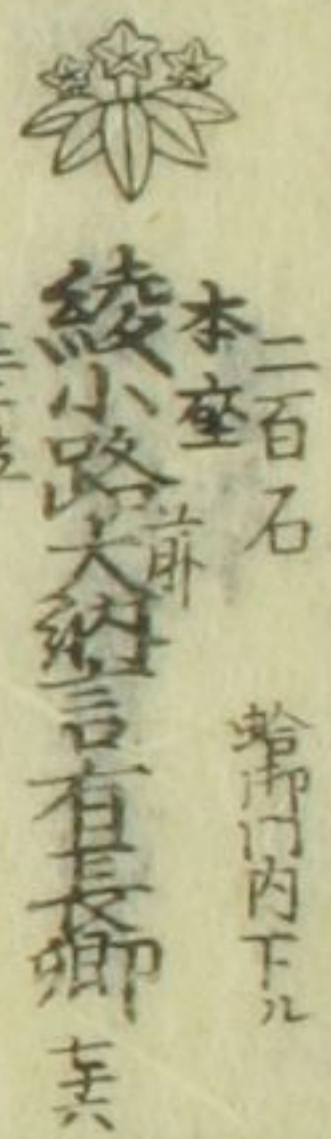 二百石
蛤御門内下ル
本座
前
綾小路大納言有長卿
七十六